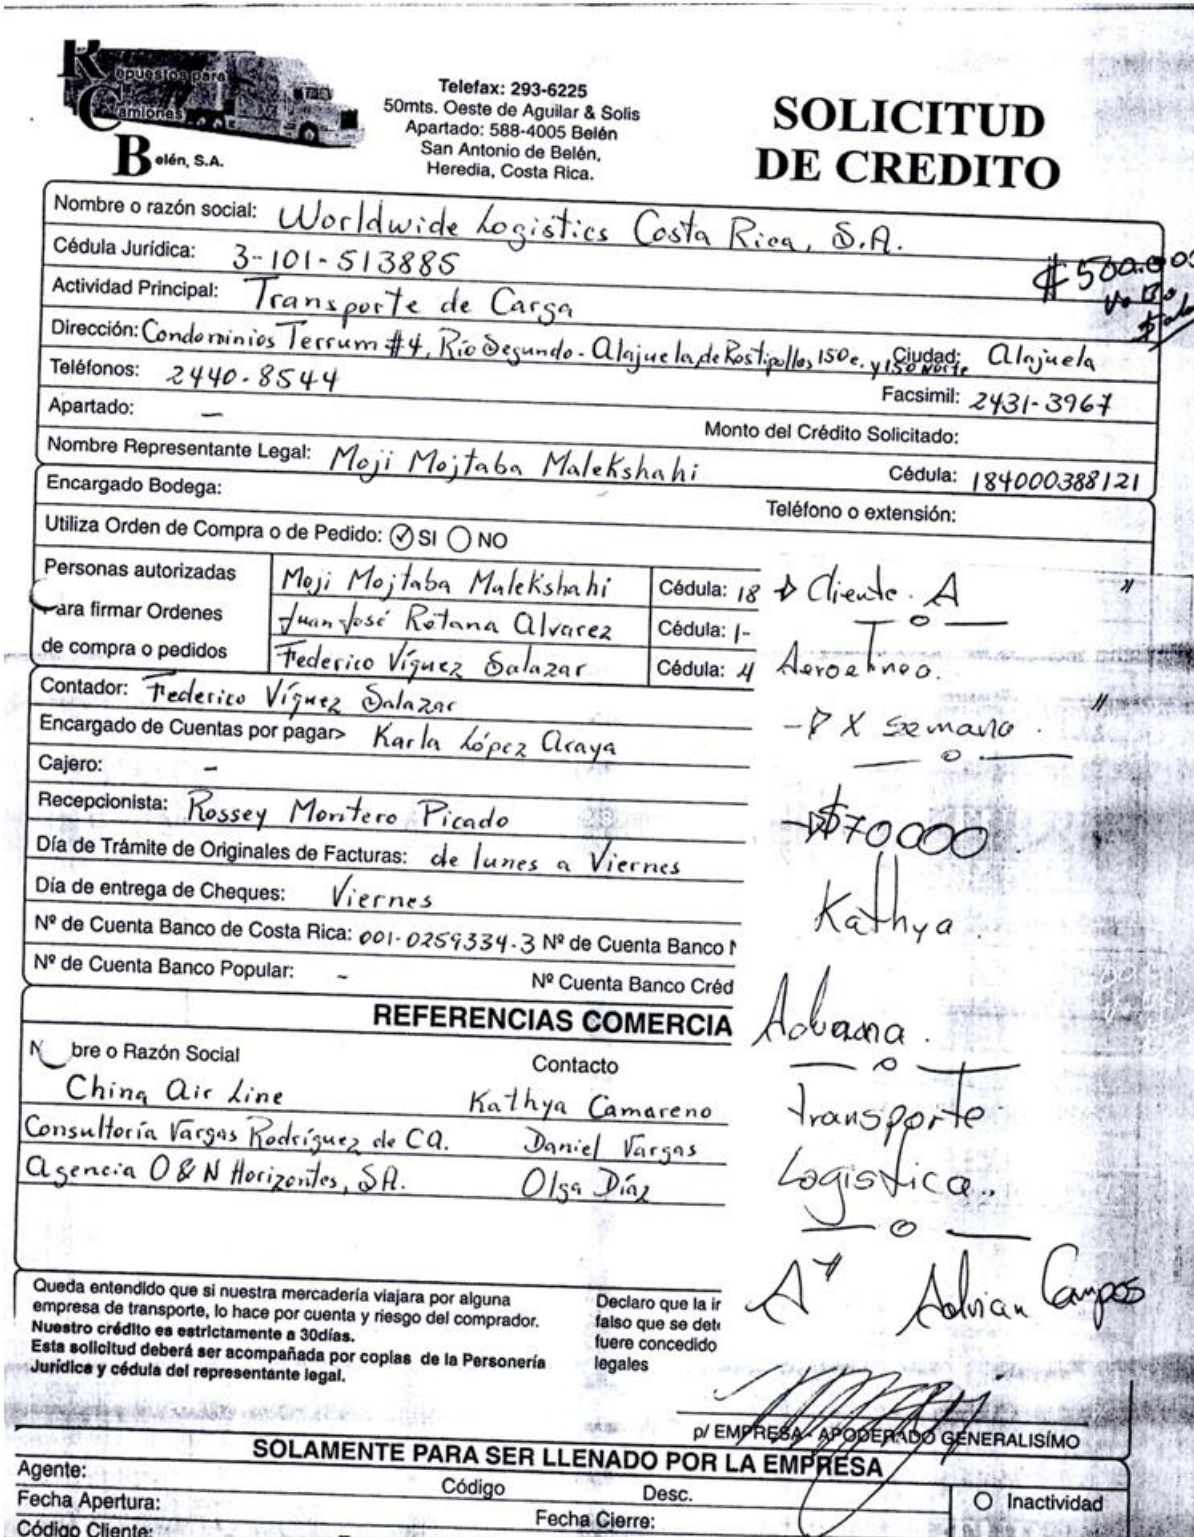 Repuestos para
Camiones
Belén, S.A.
Telefax: 293-6225
50mts. Oeste de Aguilar & Solis
Apartado: 588-4005 Belén
San Antonio de Belén,
Heredia, Costa Rica.
SOLICITUD
DE CREDITO
Nombre o razón social: Worldwide Logistics Costa Rica, S.A.
Cédula Jurídica: 3-101-513885
Actividad Principal: Transporte de Carga
Dirección: Condominios Terrum #4, Río Segundo - Alajuela, de Rostipollos, 150 e. y 150 Norte Ciudad: Alajuela
Teléfonos: 2440-8544
Facsimil: 2431-3967
Apartado: -
Monto del Crédito Solicitado:
Nombre Representante Legal: Moji Mojtaba Malekshahi Cédula: 184000388121
Encargado Bodega:
Teléfono o extensión:
Utiliza Orden de Compra o de Pedido: SI NO
Personas autorizadas
Para firmar Ordenes
de compra o pedidos
Moji Mojtaba Malekshahi Cédula: 18
Juan José Retana Alvarez Cédula: 1-
Federico Víquez Salazar Cédula: 4
Cliente. A
- o -
- X semana.
- o -
$70000
Kathya.
Aduana.
- o -
transporte
Logistica..
- o -
A Adrian Campos
Contador: Federico Víquez Salazar
Encargado de Cuentas por pagar> Karla López Araya
Cajero: -
Recepcionista: Rossey Montero Picado
Día de Trámite de Originales de Facturas: de lunes a Viernes
Día de entrega de Cheques: Viernes
Nº de Cuenta Banco de Costa Rica: 001-0259334-3 Nº de Cuenta Banco
Nº de Cuenta Banco Popular: - Nº Cuenta Banco Créd
REFERENCIAS COMERCIA
bre o Razón Social Contacto
China Air Line Kathya Camareno
Consultoría Vargas Rodríguez de CA. Daniel Vargas
Agencia O & N Horizontes, SA. Olga Díaz
Queda entendido que si nuestra mercadería viajara por alguna
empresa de transporte, lo hace por cuenta y riesgo del comprador.
Nuestro crédito es estrictamente a 30días.
Esta solicitud deberá ser acompañada por copias de la Personería
Jurídica y cédula del representante legal.
Declaro que la ir
falso que se dete
fuere concedido
legales
p/ EMPRESA - APODERADO GENERALISÍMO
SOLAMENTE PARA SER LLENADO POR LA EMPRESA
Agente: Código Desc.
Fecha Apertura: Fecha Cierre:
Inactividad
Código Cliente: